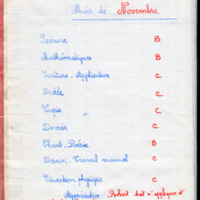 Mois de: Novembre
Lecture B
Mathématiques B
Ecriture - Application C
Dictée C
Copie C
Devoirs C
Chant - Poésie B
Dessin. Travail manuel C
Education physique C
Appréciation: Robert doit s'appliquer et